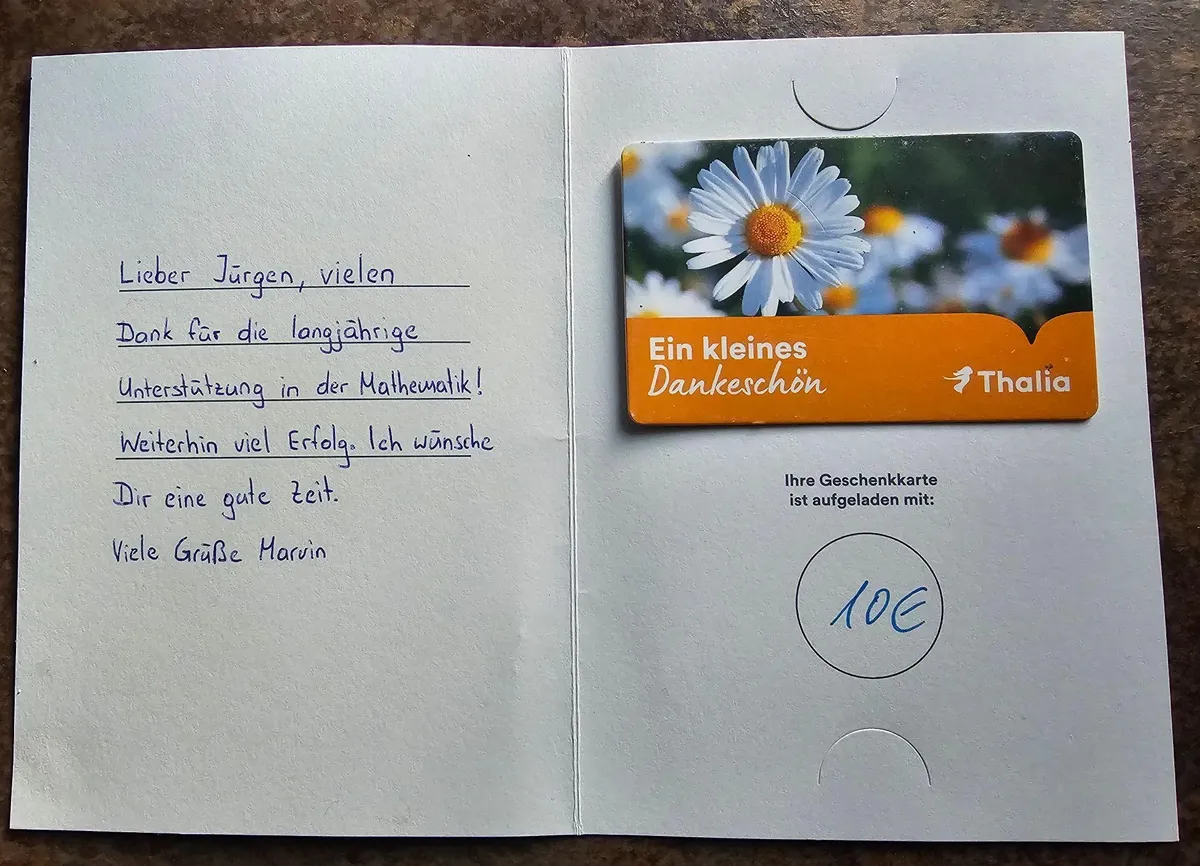 Lieber Jürgen, vielen
Dank für die langjährige
Unterstützung in der Mathematik!
Weiterhin viel Erfolg. Ich wünsche
Dir eine gute Zeit.
Viele Grüße Marvin
Ein kleines
Dankeschön
Thalia
Ihre Geschenkkarte
ist aufgeladen mit:
10€